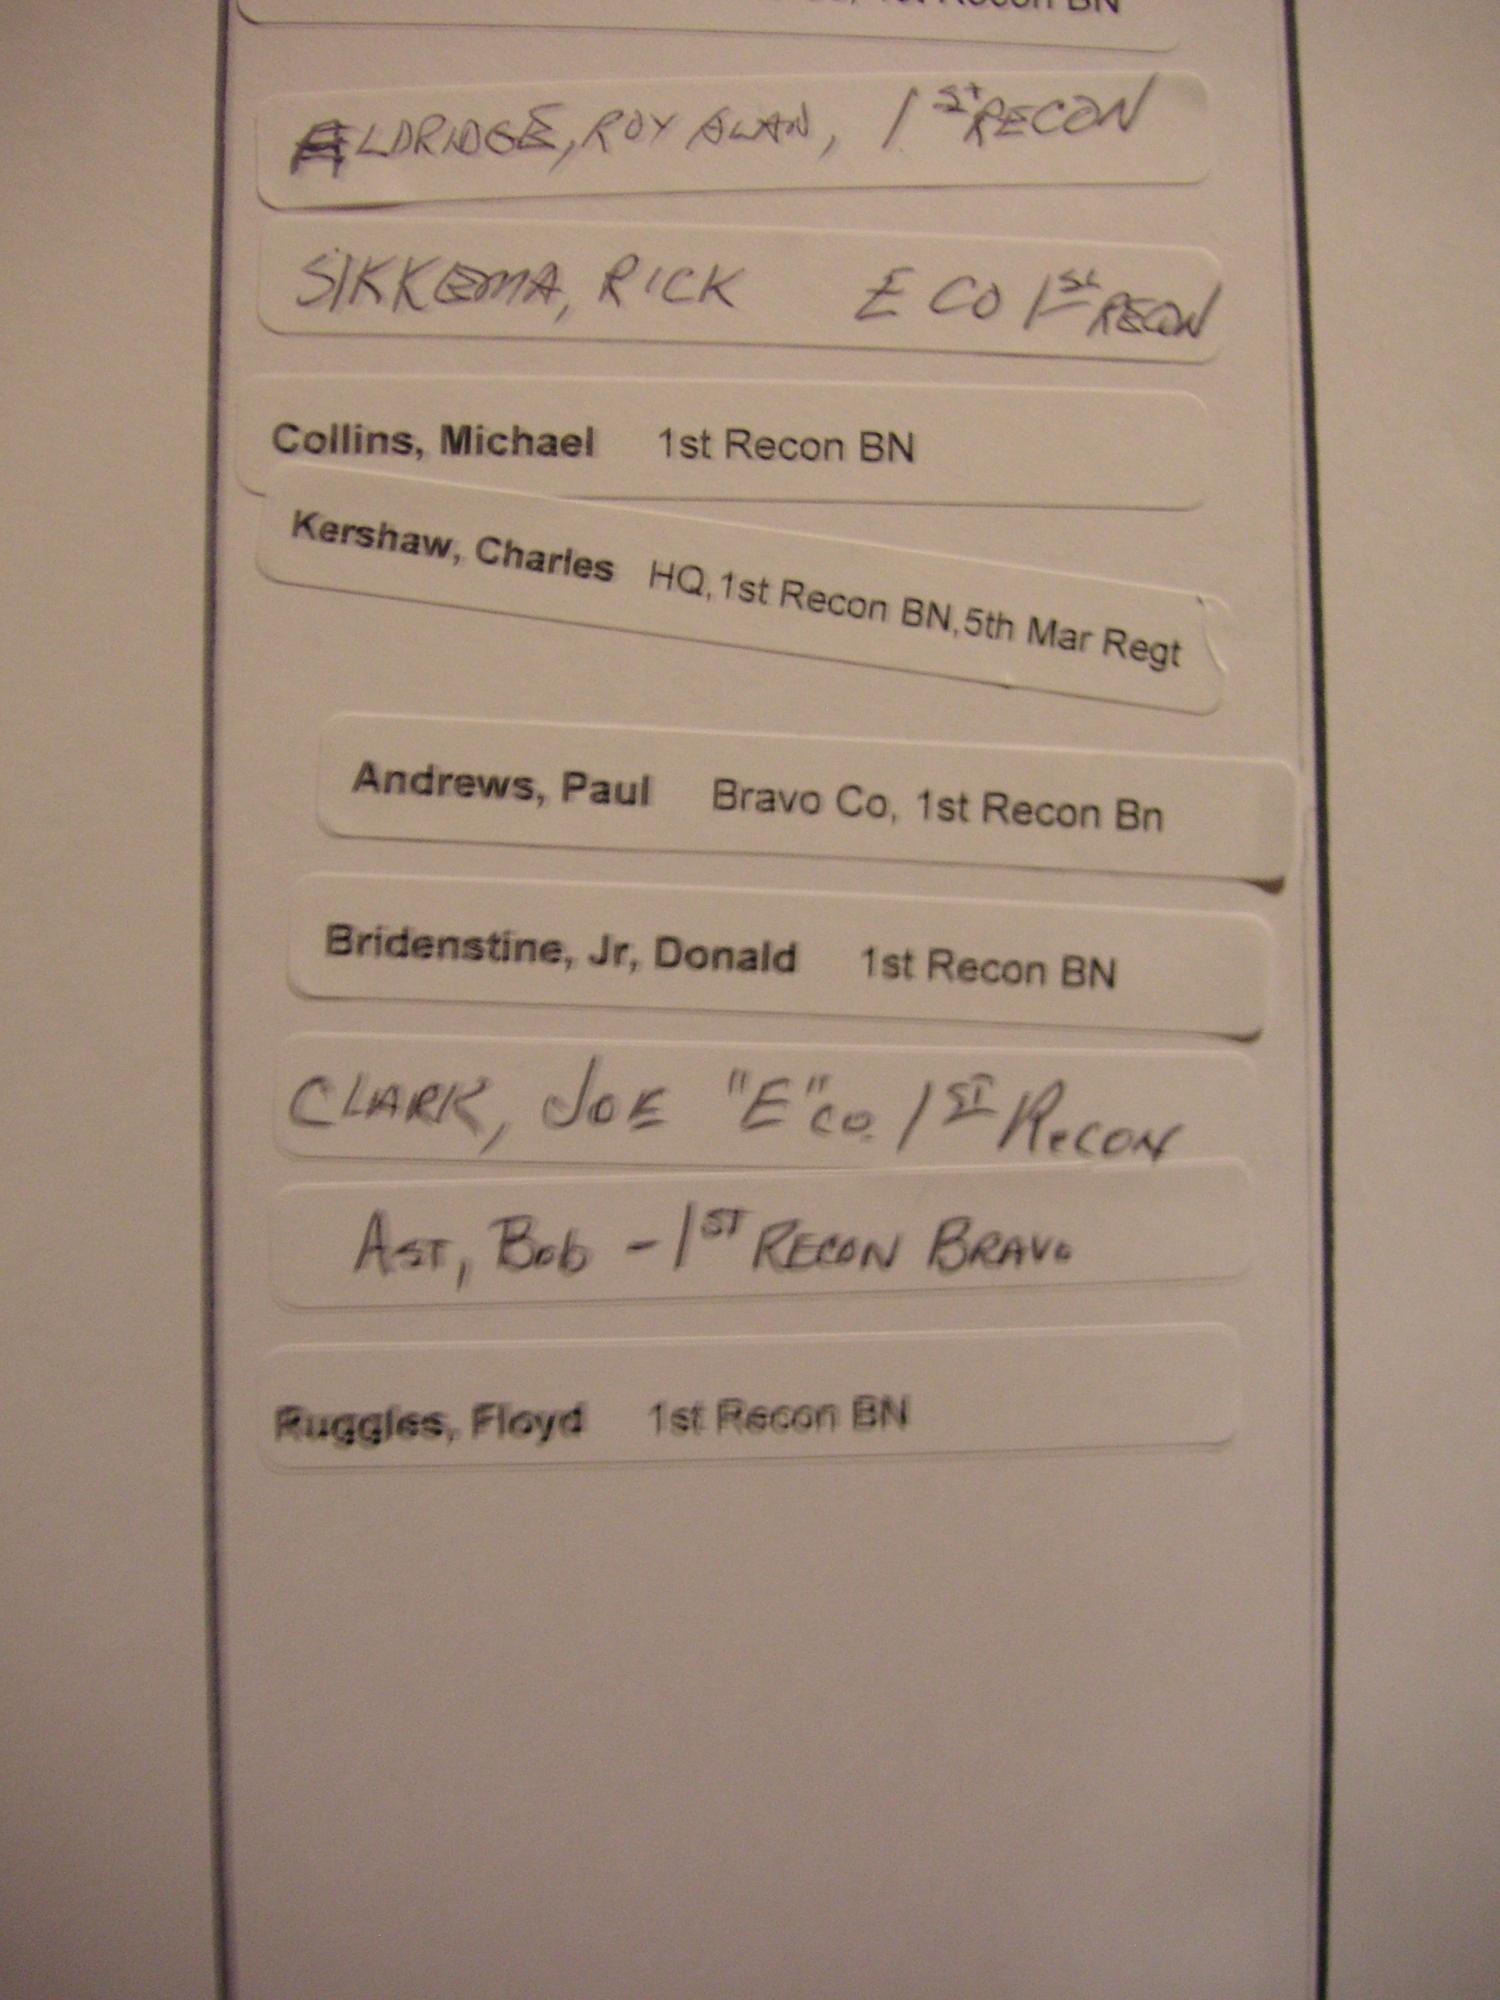 1st Recon BN
ELDRIDGE, ROY ALAN, 1st RECON
SIKKEMA, RICK E CO 1st RECON
Collins, Michael 1st Recon BN
Kershaw, Charles HQ,1st Recon BN,5th Mar Regt
Andrews, Paul Bravo Co, 1st Recon Bn
Bridenstine, Jr, Donald 1st Recon BN
CLARK, JOE "E" co. 1ST RECON
AST, Bob - 1ST RECON BRAVO
Ruggles, Floyd 1st Recon BN